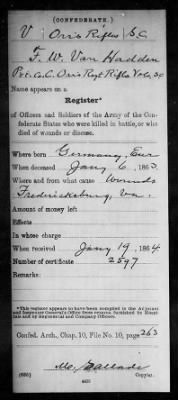 (CONFEDERATE.)
V Orr's Rifles S.C.
F. W. Van Hadden
Pvt. Co. C. Orr's Regt Rifles Vols. SC
Name appears on a
Register*
of Officers and Soldiers of the Army of the Confederate States who were killed in battle, or who
died of wounds or disease.
Where born Germany, Eur
When deceased Jany 6, 1863.
Where and from what cause Wounds
Fredericksburg, Va.
Amount of money left
Effects
In whose charge
When received Jany 19, 1864
Number of certificate 2597
Remarks:
*This register appears to have been compiled in the Adjutant
and Inspector General's Office from returns furnished by Hospitals and by Regimental and Company Officers.
Confed. Arch., Chap. 10, File No. 10, page 263
Copyist.